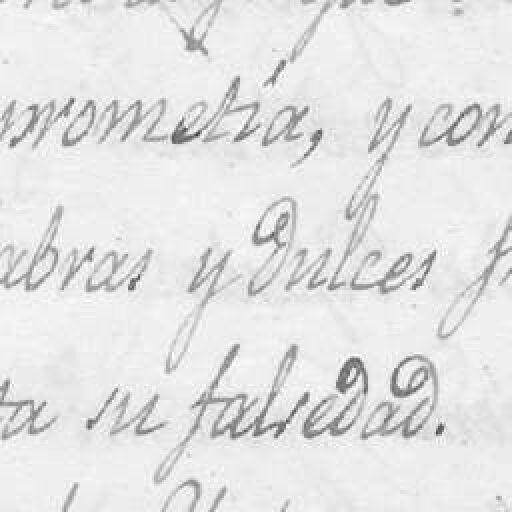 prometía, y con
abras y dulces
ta su falsedad.